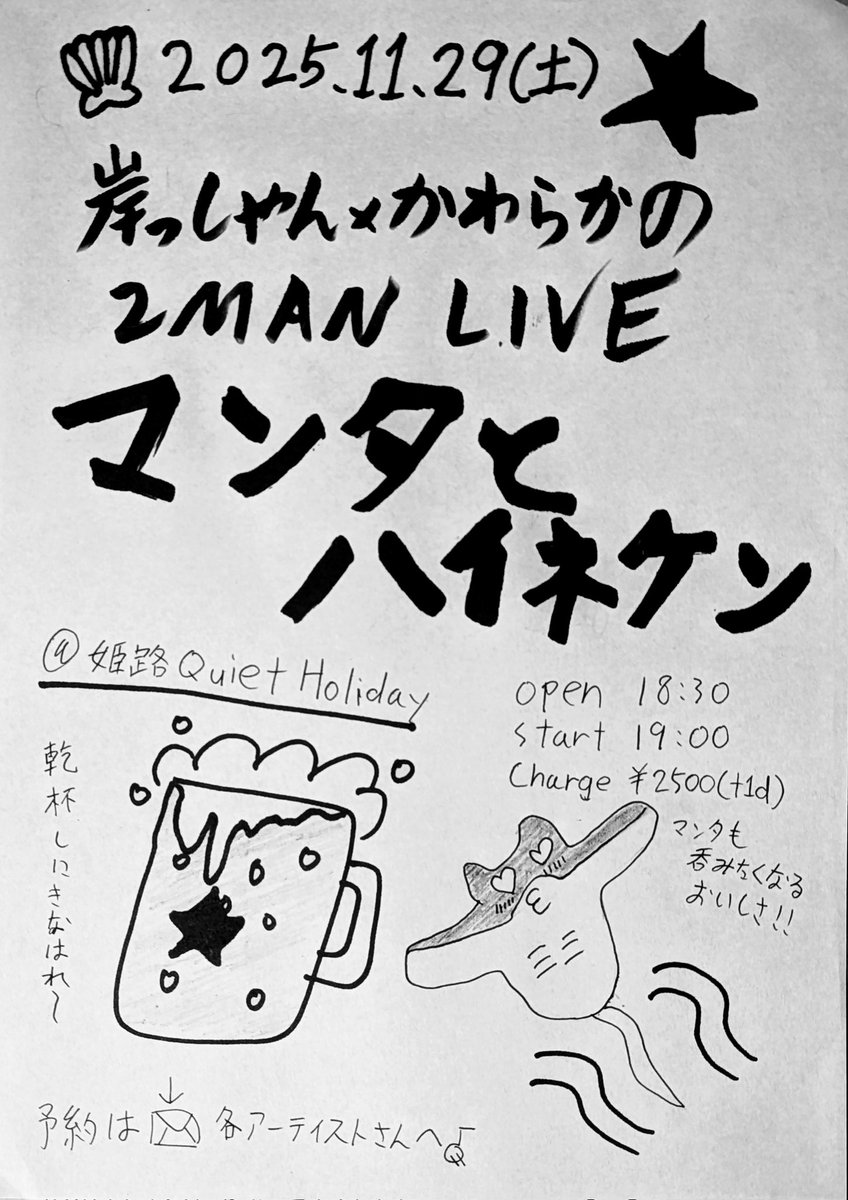 2025.11.29(土)
岸っしゃん×かわらかの
2MAN LIVE
マンタと
ハイネケン
@姫路 Quiet Holiday
open 18:30
start 19:00
Charge ¥2500(+1d)
乾杯しにきなはれ〜
マンタも
呑みたくなる
おいしさ!!
予約は↓✉各アーティストさんへ♪